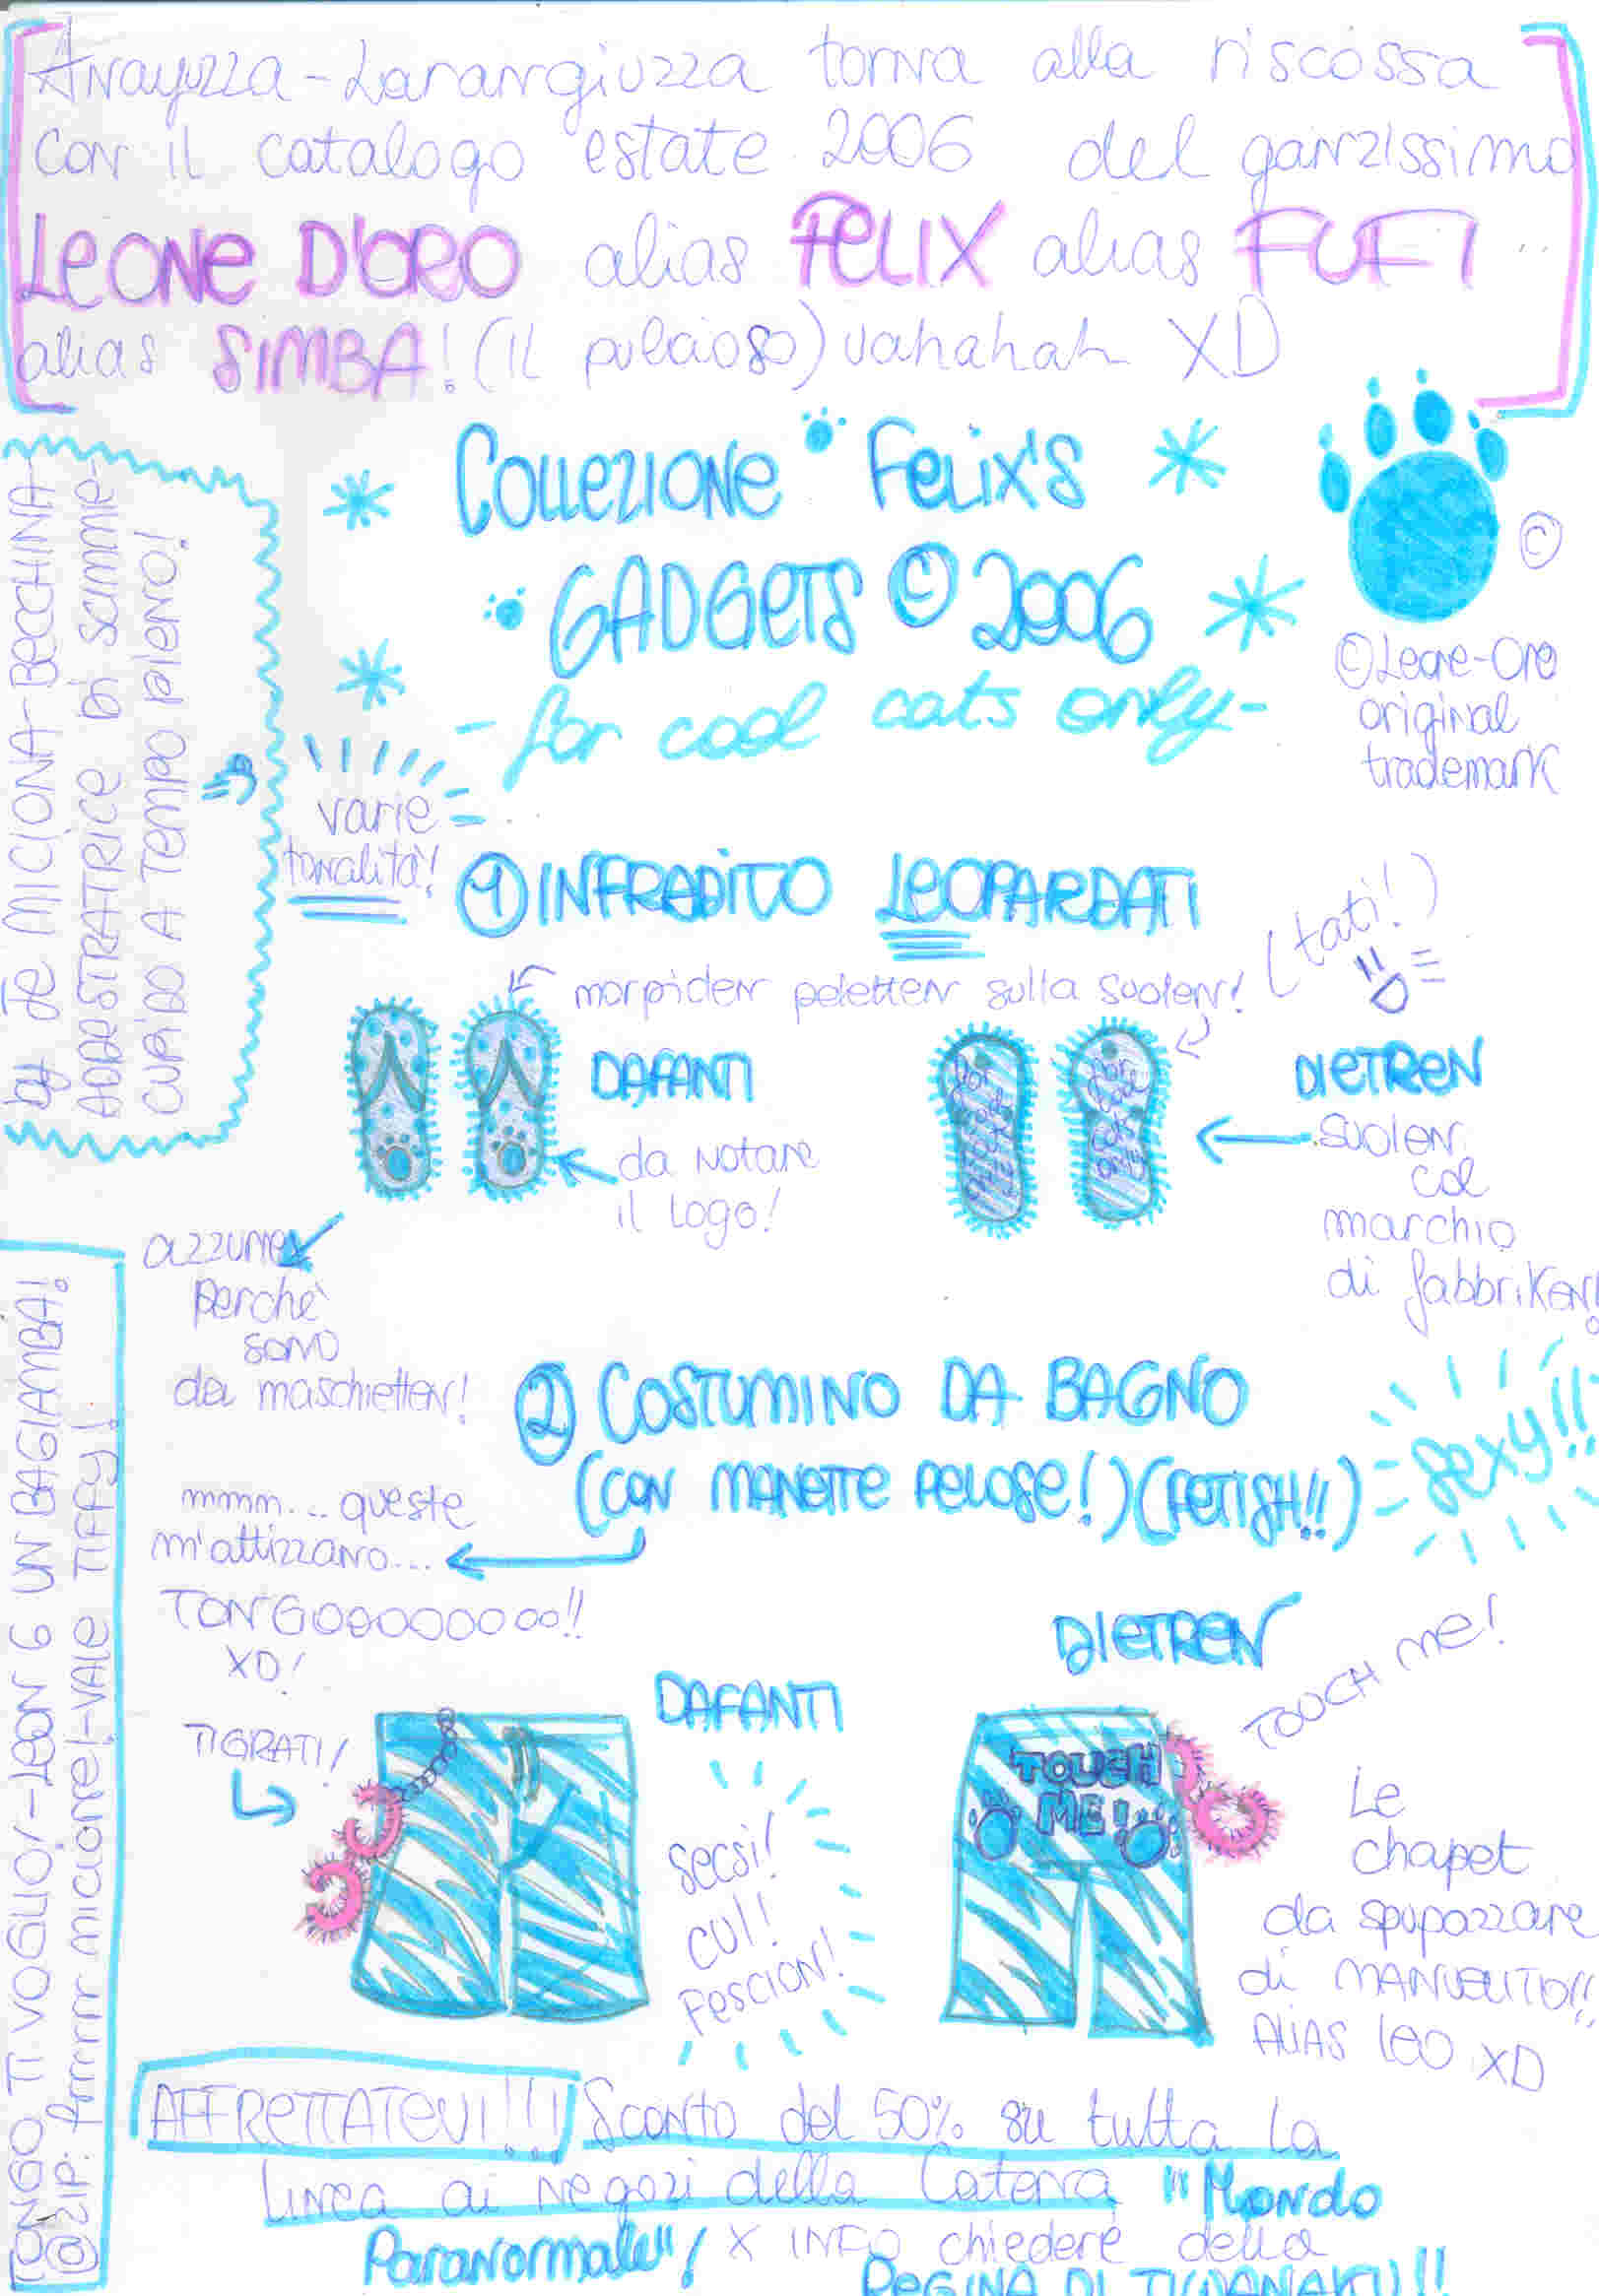 Anayuzza-Larangiuzza torna alla riscossa
con il catalogo estate 2006 del ganzissimo
LEONE D'ORO alias FELIX alias FUFI
alias SIMBA! (il pulcioso) uahahah XD
by Je MICIONA-BECCHINA-
ADDESTRATRICE DI SCIMMIE-
CUPIDO A TEMPO PIENO!
COLLEZIONE FELIX'S
GADGETS © 2006
-for cool cats only-
©
©Leone-Oro
original
trademark
varie
tonalità!
1 INFRADITO LEOPARDATI
(tati!)
morpiden peletten sulla suolen!
DAFANTI
da notare
il logo!
DIETREN
suolen
col
marchio
di fabbriken!
for cool cats only
for cool cats only
azzurre
perchè
sono
da maschietten!
2 COSTUMINO DA BAGNO
(CON MANETTE PELOSE!) (FETISH!!)
sexy!!
mmm... queste
m'attizzano...
TONGOooooooo!!
XD!
TIGRATI!
DAFANTI
secsi!
cul!
fescion!
DIETREN
TOUCH ME!
TOUCH
ME!
Le
chapet
da spupazzare
di MANUELITO!!
ALIAS LEO XD
TONGO TI VOGLIO!-LEON 6 UN BAGIAMBA!
@ZIP: Arrrrrr micione!-VALE TIFFY!
AFFRETTATEVI!!! Sconto del 50% su tutta la
linea ai negozi della Catena "Mondo
Paranormale"! X INFO chiedere della
REGINA DI TIWANAKU!!